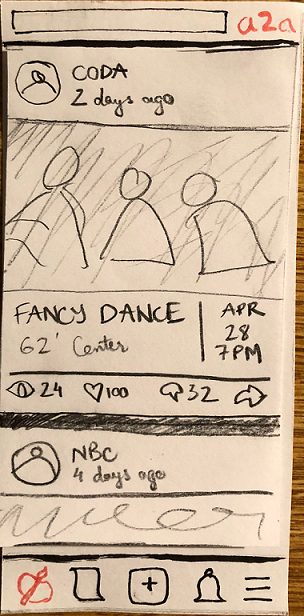 a2a
CODA
2 days ago
FANCY DANCE
62' Center
APR
28
7PM
24 100 32
NBC
4 days ago